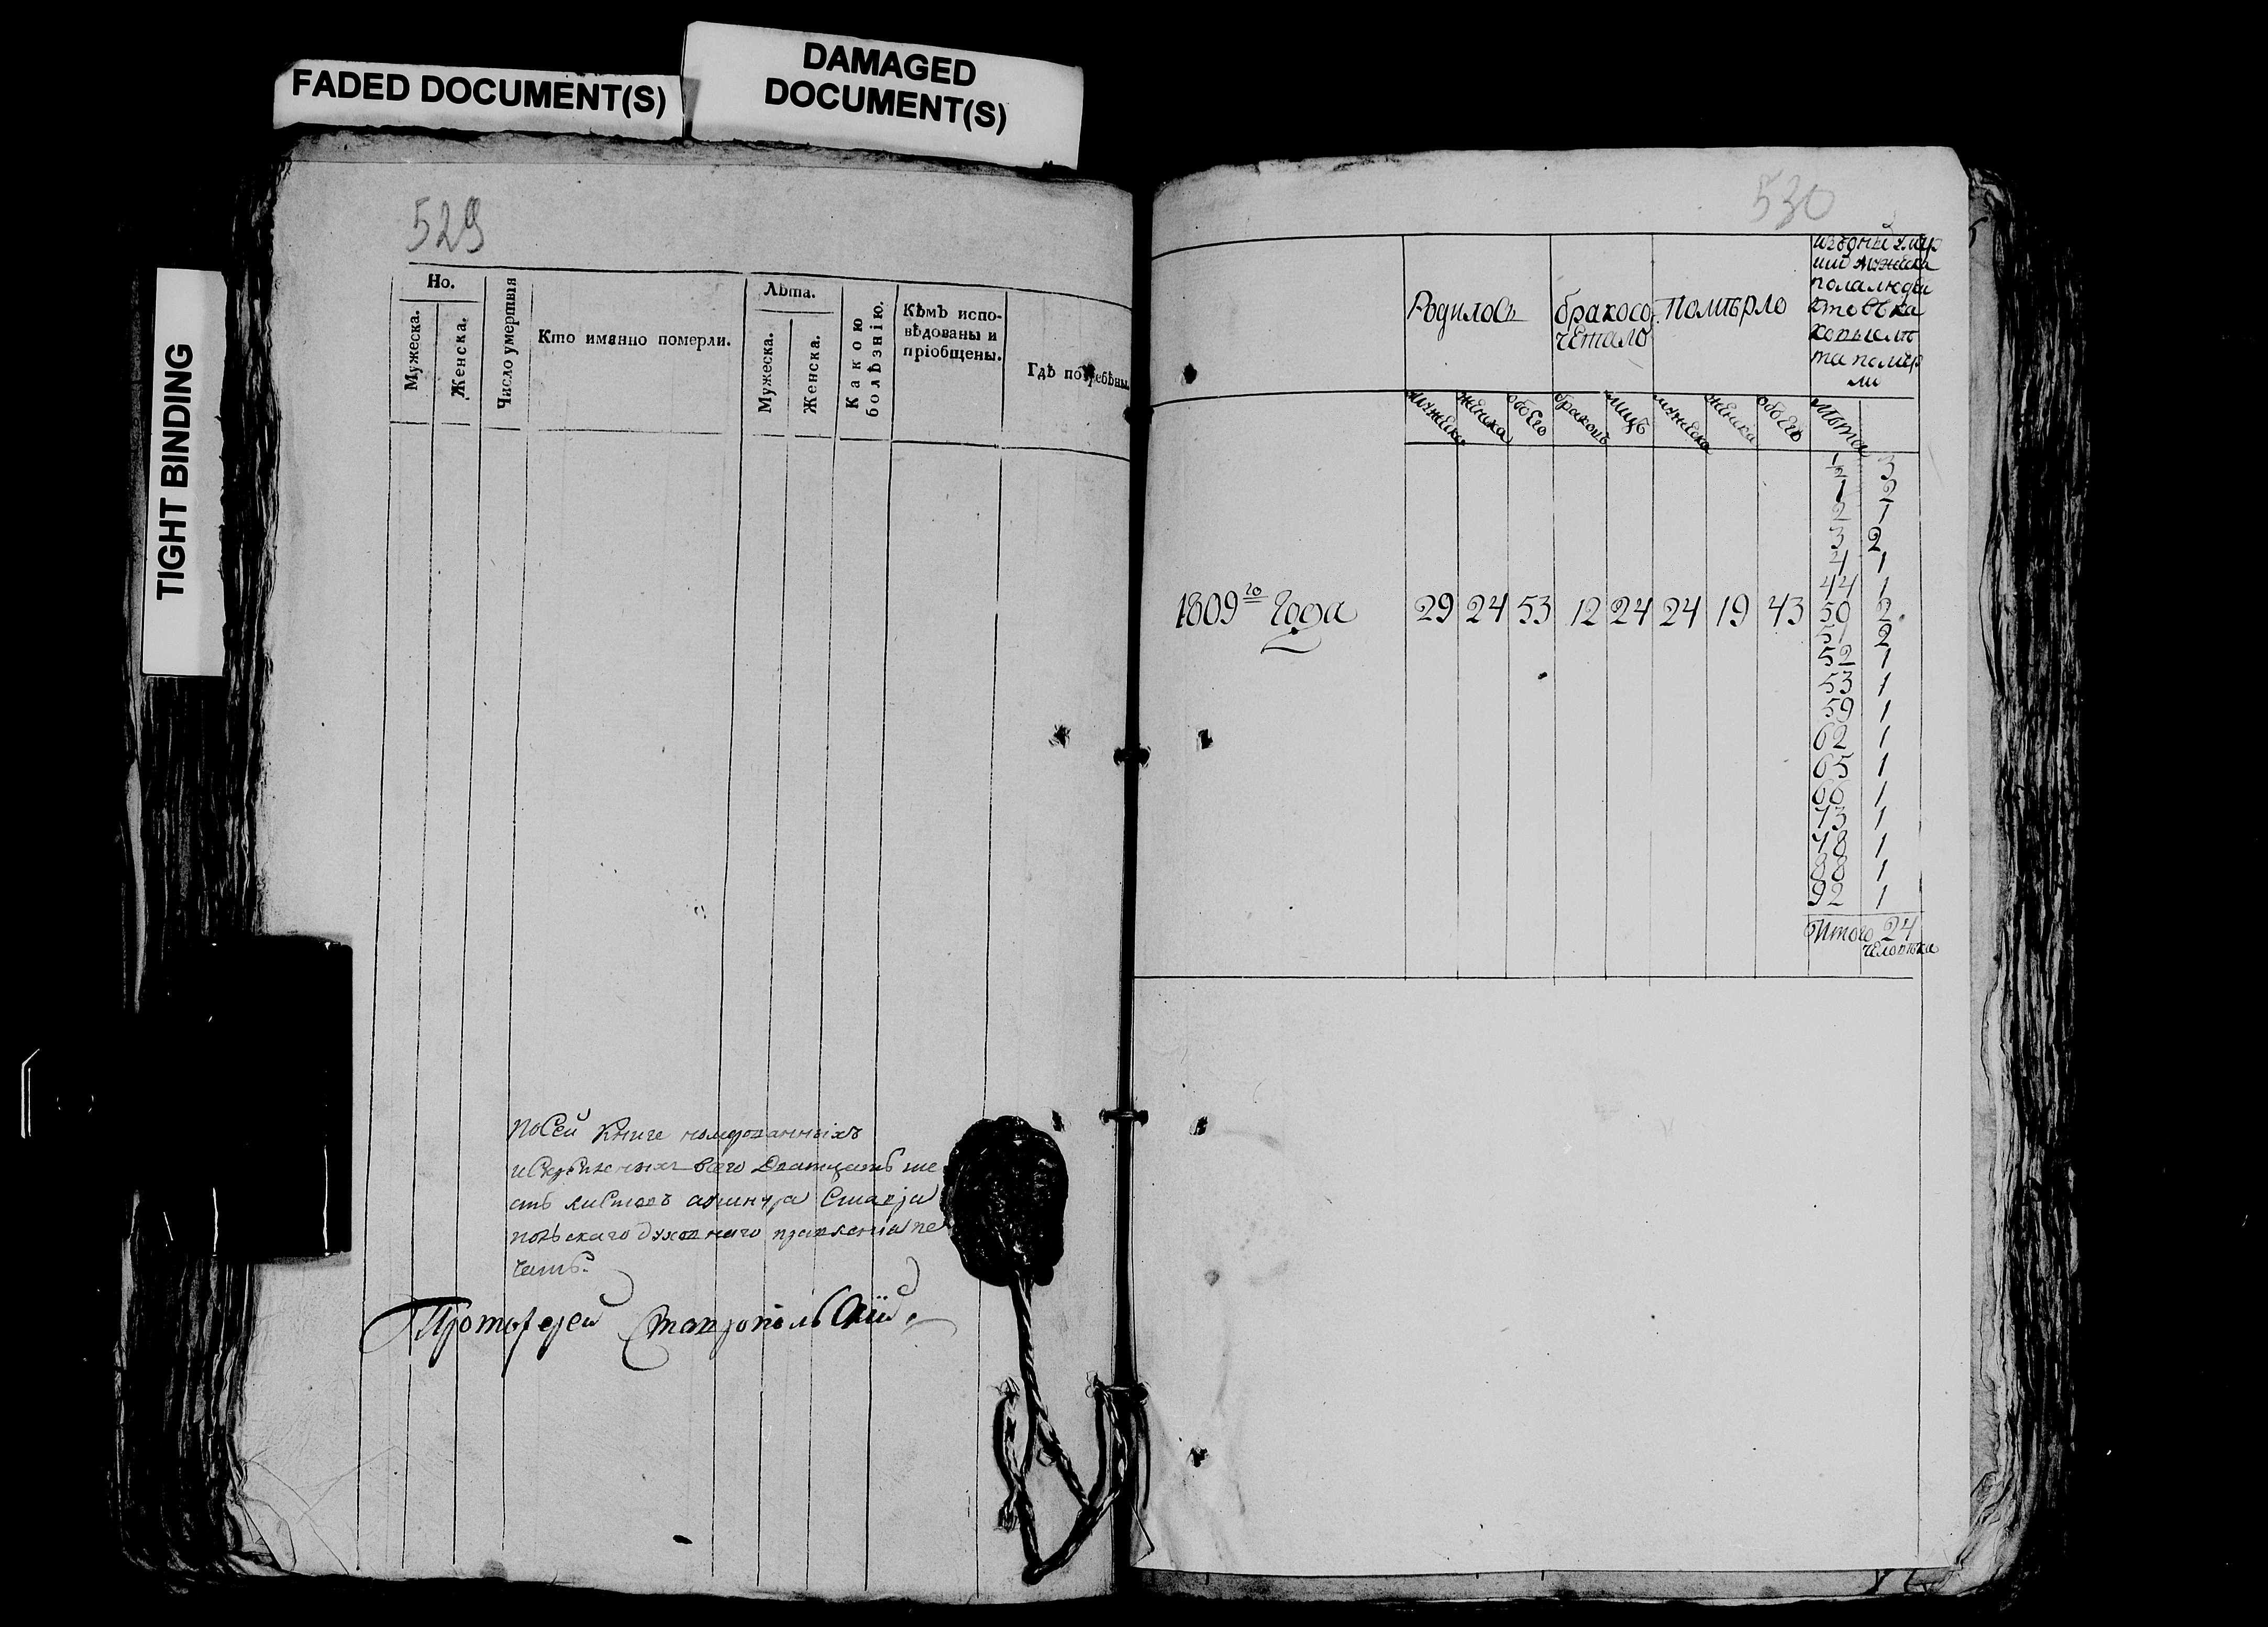 FADED DOCUMENT(S)
DAMAGED
DOCUMENT(S)
TIGHT BINDING
529
Но.
Мужеска.
Женска.
Число умертвія
Кто иманно померли.
Лѣта.
Мужеска.
Женска.
Какою
болѣзнію.
Кѣмъ испо-
вѣдованы и
пріобщены.
Гдѣ погребѣны
посей книге
всего Дватцать ше
сть листовъ Ставро
польскаго духовнаго правленія пе
чать.
Протоіерей Ставропольскій
530
Родилось
бракосо
четало
Помѣрло
пола люди
мужеска
женска
обоего
браковъ
лицъ
мужеска
женска
обоего
лѣта
1809го Года
29 24 53 12 24 24 19 43
1/2 3
1 2
2 1
3 2
4 1
44 1
50 2
51 2
52 1
53 1
59 1
62 1
65 1
66 1
73 1
78 1
88 1
92 1
Итого 24
человѣка